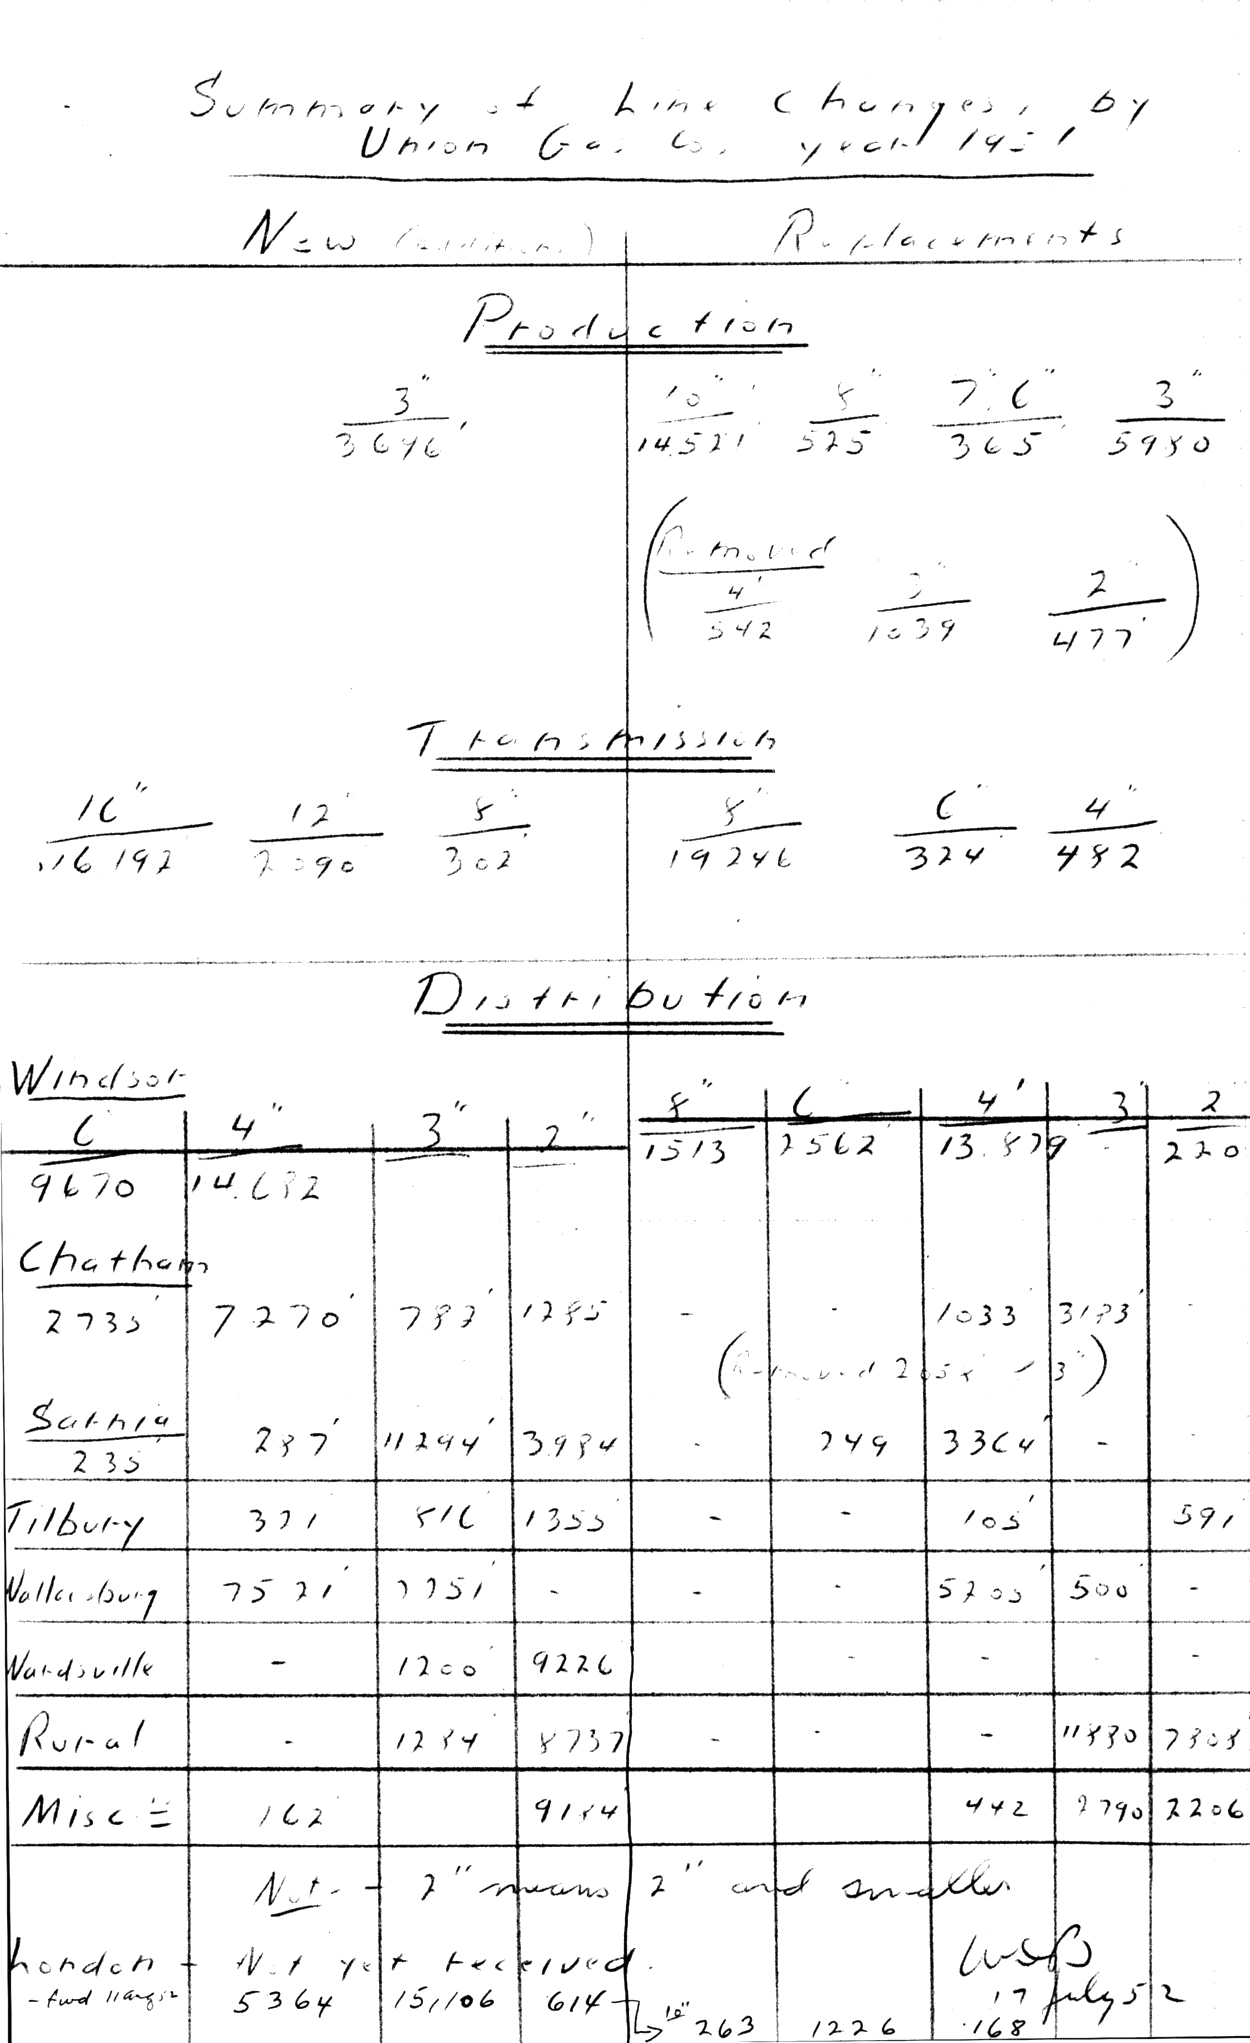 Summary of Line Changes, by
Union Gas Co. year 1951
New (additions) Replacements
Production
3" 10" 8" 7" 6" 3"
3646' 14521 525 365 5980
(Removed
4" 3" 2"
542 1039 477')
Transmission
16" 12" 8" 8" 6" 4"
16192 2090 302 19246 324 482
Distribution
Windsor
6 4" 3" 2" 8" 6 4' 3 2
9670 14,682 1513 2562 13.879 - 220
Chatham
2735' 7270' 782' 1285 - - 1033 3183' -
(Removed 2058' / 3")
Sarnia
235 287' 11294' 3984 - 249 3364' - -
Tilbury 321 816 1355 - - 105' 591
Wallaceburg 7521' 2251' - - - 5205' 500' -
Wardsville - 1200' 9226 - - - -
Rural - 1284 8737 - - - 11880 7808
Misc 162 9184 442 2790 2206
Note - 2" means 2" and smaller
London - Not yet received.
WSB
17 July 52
5364 15,106 614
10" 263 1226 168